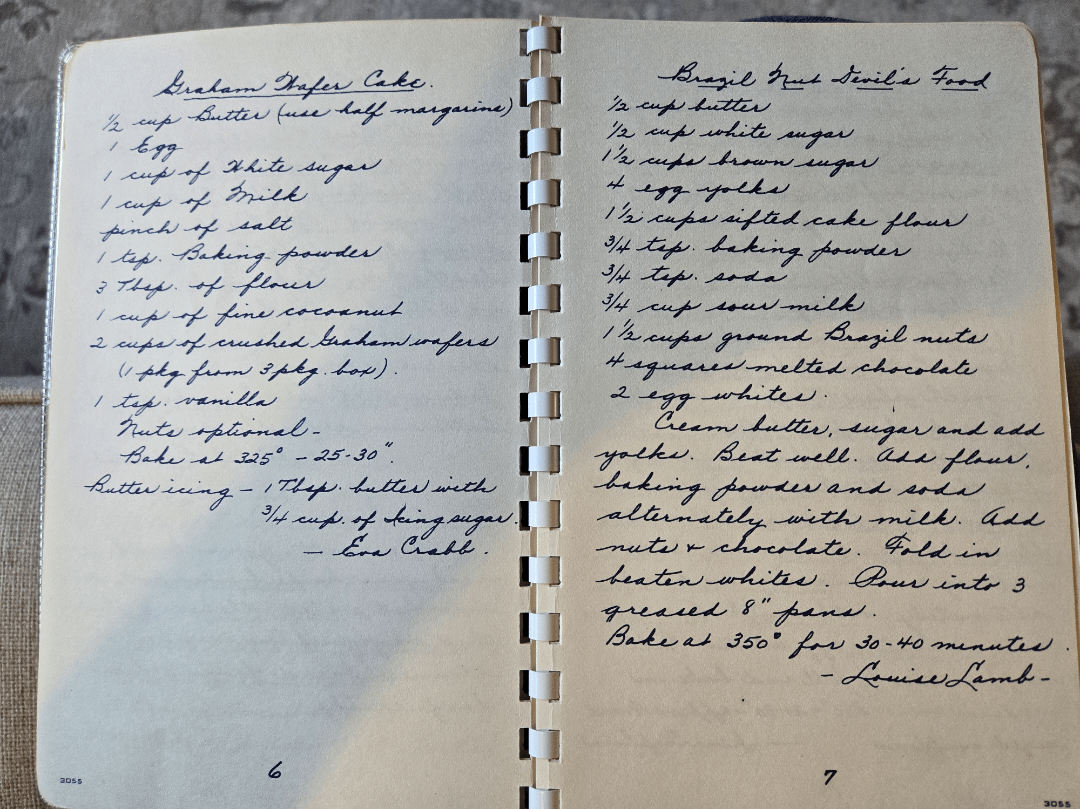 Graham Wafer Cake.
1/2 cup Butter (use half margarine)
1 Egg
1 cup of White sugar
1 cup of Milk
pinch of salt
1 tsp. Baking powder
3 Tbsp. of flour
1 cup of fine cocoanut
2 cups of crushed Graham wafers
(1 pkg from 3 pkg. box).
1 tsp. vanilla
Nuts optional -
Bake at 325° - 25-30".
Butter icing - 1 Tbsp. butter with
3/4 cup. of Icing sugar.
- Eva Crabb.
6
3055
Brazil Nut Devil's Food
1/2 cup butter
1/2 cup white sugar
1 1/2 cups brown sugar
4 egg yolks
1 1/2 cups sifted cake flour
3/4 tsp. baking powder
3/4 tsp. soda
3/4 cup sour milk
1 1/2 cups ground Brazil nuts
4 squares melted chocolate
2 egg whites.
Cream butter, sugar and add
yolks. Beat well. Add flour,
baking powder and soda
alternately with milk. Add
nuts & chocolate. Fold in
beaten whites. Pour into 3
greased 8" pans.
Bake at 350° for 30-40 minutes.
- Louise Lamb -
7
3055